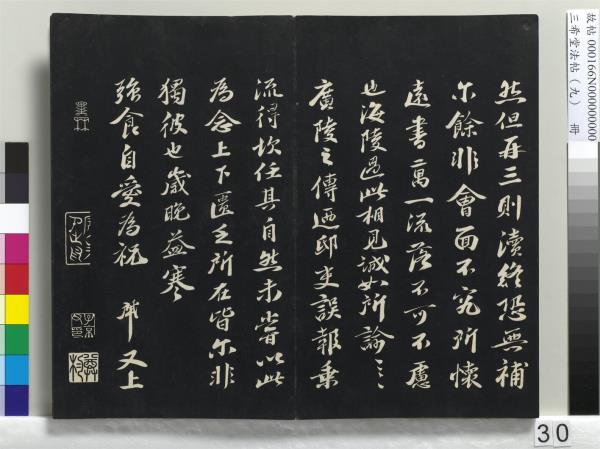 然但再三則瀆終恐無補
尔餘非會面不究所懷
遠書萬一流落不可不慮
也海陵遇此相見誠如所論
廣陵之傳迺邸吏誤報乘
流得坎任其自然未嘗以此
為念上下匱乏所在皆尔非
獨彼也歲晚益寒
強食自愛為祝 又上
故帖 000166N000000000
三希堂法帖(九) 冊
30